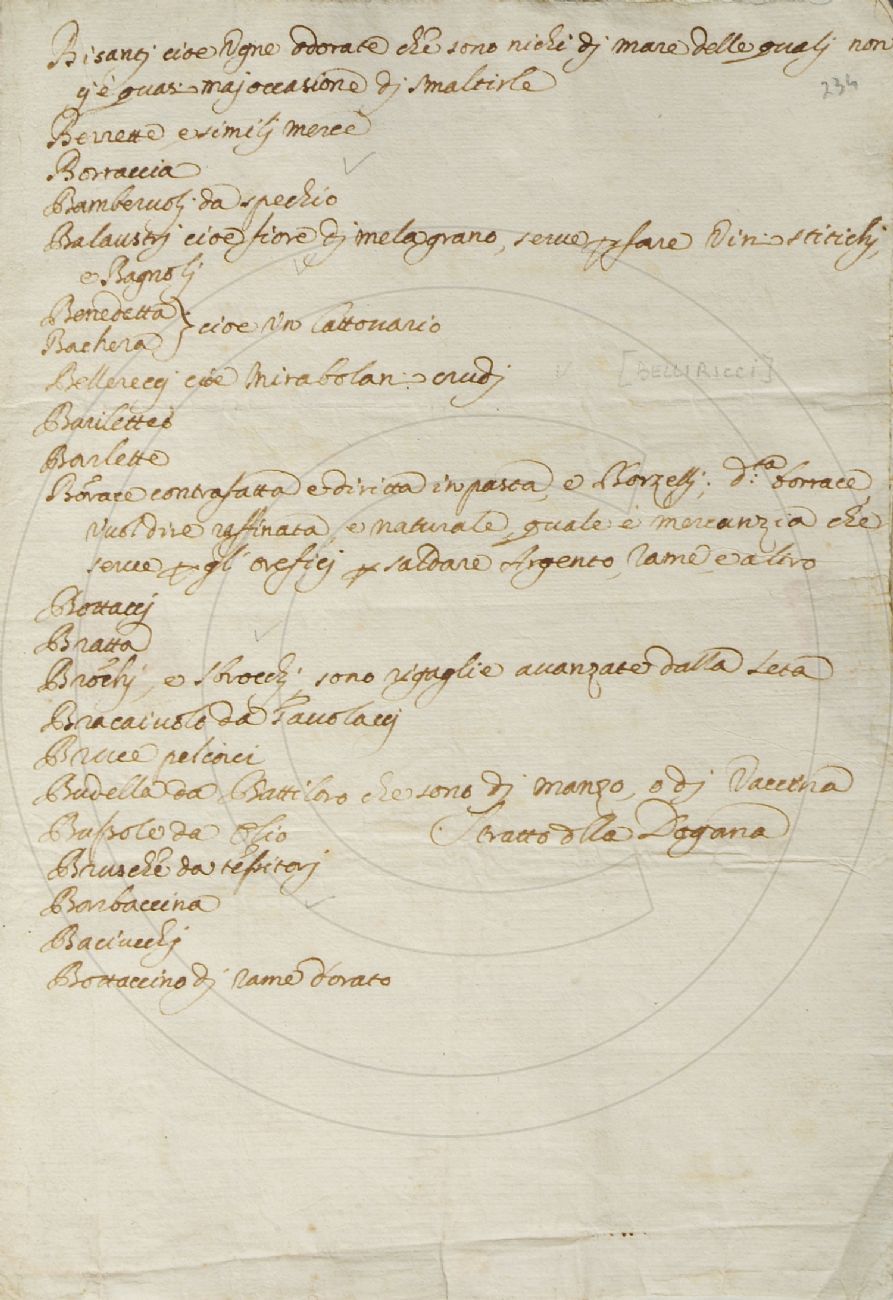 Bisantj cioe Vgne odorate che sono nichi dj mare delle qualj non
234
c'è quasi maj occasione dj smaltirle
Berrette e similj merce
Borraccia
Bambervolj da specchio
Balaustrj cioe fiore dj mela grano, serve p fare Vini stitichj,
e Bagnolj
Benedetta
Bachera } cioe un lattovario
Bellereccj cioe Mirabolani crudj [BELLIRICCI]
Barilette
Barlette
Borace contrafatta e diritta in pasta, e Borzellj; d.ta borrace
vuol dire raffinata, e naturale, quale è mercanzia che
serve p gl' oreficj p saldare Argento, rame e altro
Bottaccj
Bratta
Brochj, e sbrocchj, sono rigaglie avanzate dalla seta
Bracaivolo da Tavolaccj
Bruce
Budella da Battiloro che sono dj manzo, o dj Vaccina
Bussole da Olio Stratto dlla Dogana
Brusche da tessitorj
Barbaccina
Baciucchj
Bottaccino dj rame dorato